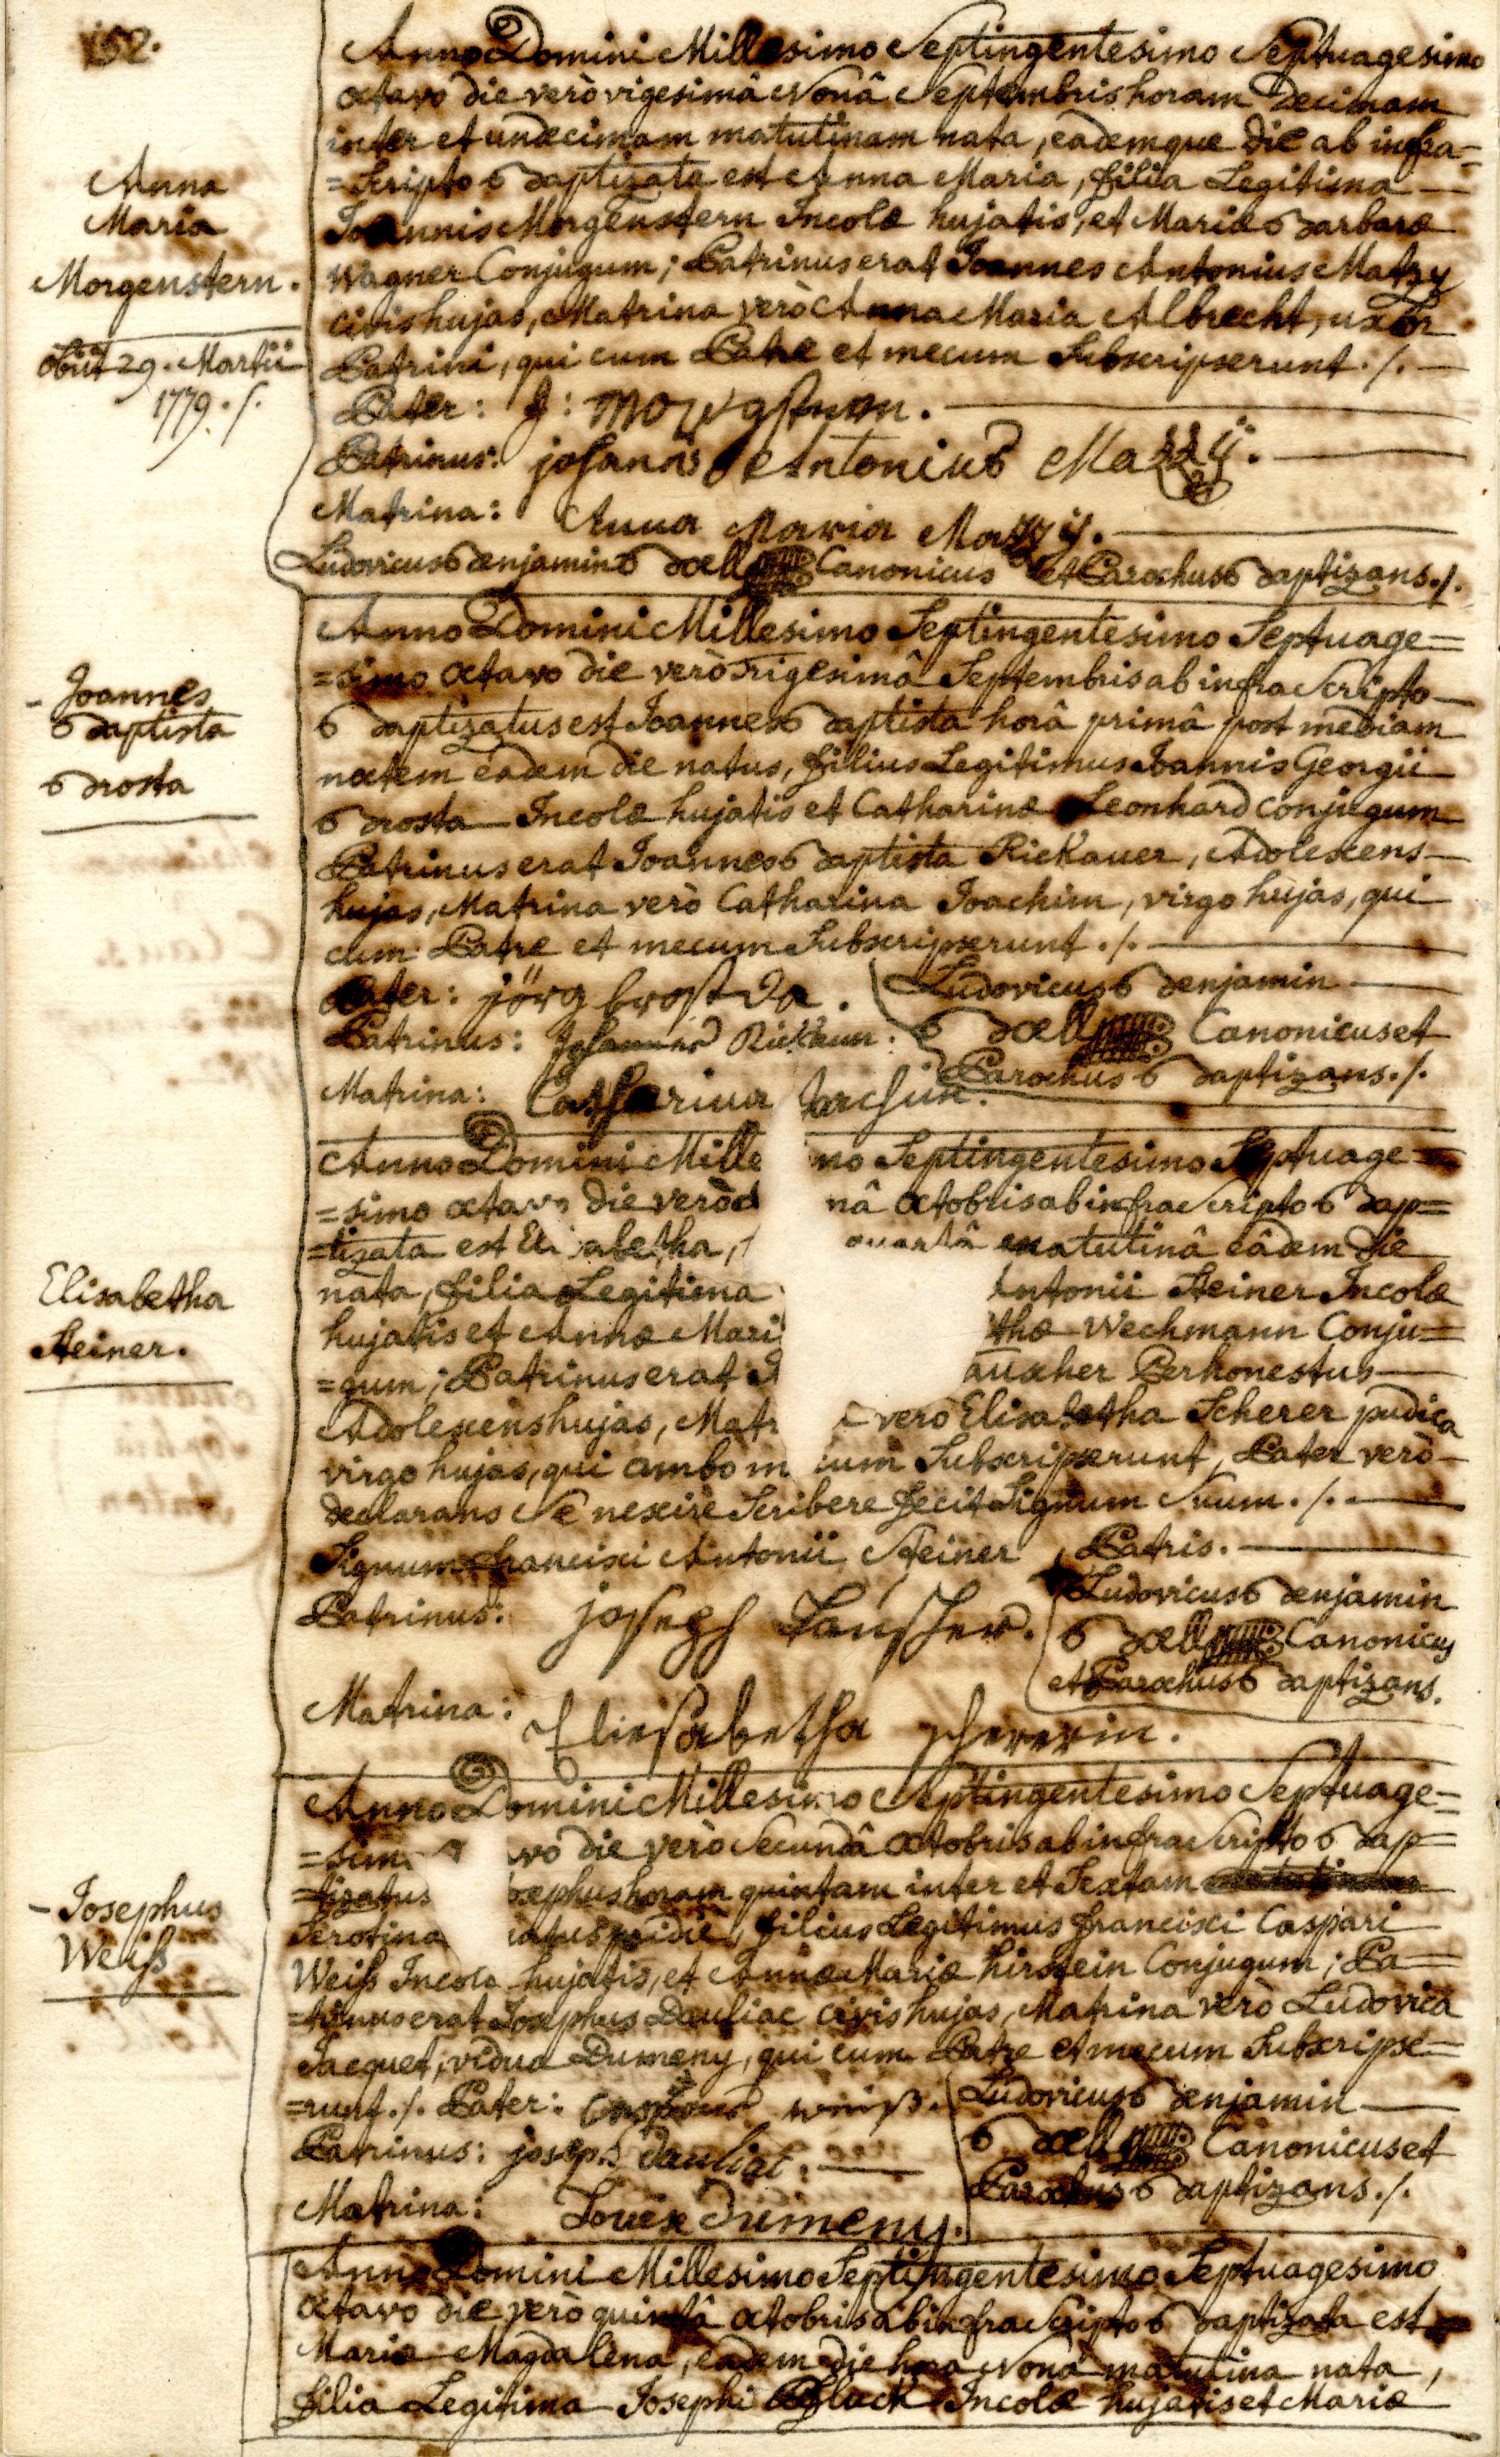 152.
Anna
Maria
Morgenstern.
obiit 29. Martii
1779./.
Anno Domini Millesimo Septingentesimo Septuagesimo
octavo die verò vigesimâ Nonâ Septembris horam Decimam
inter et undecimam matutinam nata, eademque die ab infra=
=Scripto Baptizata est Anna Maria, filia Legitima
Joannis Morgenstern Incolæ hujatis, et Mariæ Barbaræ
Wagner Conjugum; Patrinus erat Joannes Antonius Matzy
civis hujas, Matrina verò Anna Maria Albrecht, uxor
Patrini, qui cum Patre et mecum Subscripserunt./.
Pater: J: Morgestern.
Patrinus: johanes Antonius Mazzÿ.
Matrina: Anna Maria Mazzÿ.
Ludovicus Benjamin Bœll Canonicus et Parochus Baptizans./.
Joannes
Baptista
Brosta
Anno Domini Millesimo Septingentesimo Septuage=
=simo octavo die verò Trigesimâ Septembris ab infra Scripto
Baptizatus est Joannes Baptista horâ primâ post mediam
noctem eâdem die natus, filius Legitimus Joannis Georgii
Brosta Incolæ hujatis et Catharinæ Leonhard conjugum
Patrinus erat Joannes Baptista Rickauer, Adolescens
hujas, Matrina verò Catharina Joachim, virgo hujas, qui
cum Patre et mecum Subscripserunt./.
Pater: jörg brost
Patrinus: Johannes
Matrina: Catharina
Ludovicus Benjamin
Bœll Canonicus et
Parochus Baptizans./.
Elisabetha
Steiner.
Anno Domini Mille no Septingentesimo Septuage
=simo octavo die verò nâ octobris ab infra Scripto Bap=
=tizata est Elisabetha, quartâ matutinâ eâdem die
nata, filia Legitima Antonii Steiner Incolæ
hujatis et Annæ Mari thæ Wechmann Conju=
=gum; Patrinus erat auscher Perhonestus
Adolescens hujas, Matr verò Elisabetha Scherer pudica
virgo hujas, qui ambo m cum Subscripserunt, Pater verò
declarans Se nescire Scribere fecit Signum Suum./.
Signum Francisci Antonii Steiner Patris.
Patrinus: josseph Lauscher.
Matrina: Eliesabetha schererin.
Ludovicus Benjamin
Bœll Canonicus
et Parochus Baptizans.
Josephus
Weiß
Anno Domini Millesimo Septingentesimo Septuage=
=sim vo die verò Secundâ octobris ab infra Scripto Bap=
=tizatus Josephus horam quintam inter et Sextam
Serotina natus pridie, filius Legitimus Francisci Caspari
Weiß Incolæ hujatis, et Annæ Mariæ Hirstein Conjugum; Pa=
=trinus erat Josephus Dauliac civis hujas, Matrina verò Ludovica
Jacquet, vidua Dumeny, qui cum Patre et mecum Subscripse=
=runt./. Pater: weiß.
Patrinus: joseph dauliac.
Matrina: Louise dumeny.
Ludovicus Benjamin
Bœll Canonicus et
Parochus Baptizans./.
Anno Domini Millesimo Septingentesimo Septuagesimo
octavo die verò quintâ octobris ab infra Scripto Baptizata est
Maria Magdalena, eadem die hora Nona matutina nata,
filia Legitima Josephi Incolæ hujatis et Mariæ